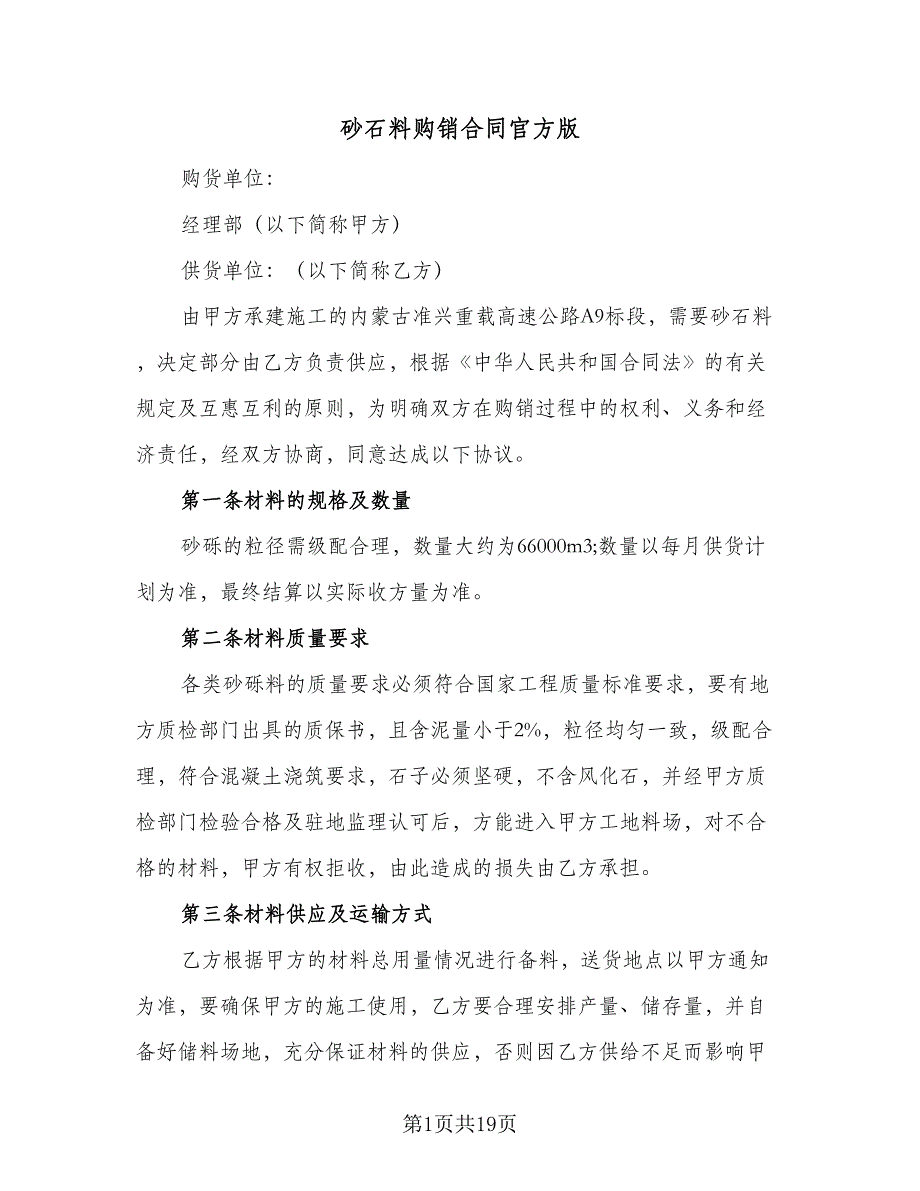 砂石料购销合同官方版
购货单位：
经理部（以下简称甲方）
供货单位：（以下简称乙方）
由甲方承建施工的内蒙古准兴重载高速公路A9标段，需要砂石料
，决定部分由乙方负责供应，根据《中华人民共和国合同法》的有关
规定及互惠互利的原则，为明确双方在购销过程中的权利、义务和经
济责任，经双方协商，同意达成以下协议。
第一条材料的规格及数量
砂砾的粒径需级配合理，数量大约为66000m3;数量以每月供货计
划为准，最终结算以实际收方量为准。
第二条材料质量要求
各类砂砾料的质量要求必须符合国家工程质量标准要求，要有地
方质检部门出具的质保书，且含泥量小于2%，粒径均匀一致，级配合
理，符合混凝土浇筑要求，石子必须坚硬，不含风化石，并经甲方质
检部门检验合格及驻地监理认可后，方能进入甲方工地料场，对不合
格的材料，甲方有权拒收，由此造成的损失由乙方承担。
第三条材料供应及运输方式
乙方根据甲方的材料总用量情况进行备料，送货地点以甲方通知
为准，要确保甲方的施工使用，乙方要合理安排产量、储存量，并自
备好储料场地，充分保证材料的供应，否则因乙方供给不足而影响甲
第1页共19页